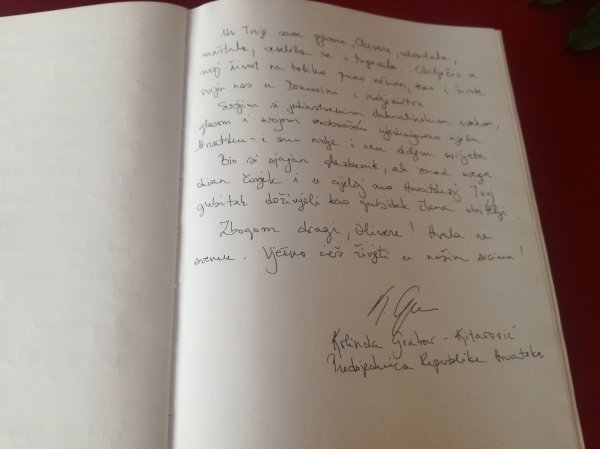 Uz Tvoje sam pjesme, Olivere, odrastala,
maštala, veselila se i tugovala. Obilježio si
moj život na toliko puno načina, kao i živote
sviju nas u Domovini i iseljeništvu.
Svojim si jedinstvenim dalmatinskim
glasom i svojom osobnošću ujedinjavao cijelu
Hrvatsku - i onu ovdje i onu diljem svijeta
Bio si sjajan glazbenik, ali iznad svega
divan čovjek i u cijeloj smo Hrvatskoj Tvoj
gubitak doživjeli kao gubitak člana obitelji.
Zbogom dragi, Olivere! Hvala na
svemu. Vječno ćeš živjeti u našim srcima!
Kolinda Grabar-Kitarović
Predsjednica Republike Hrvatske